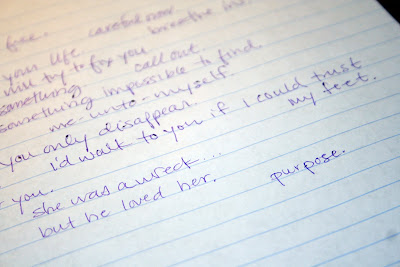 free. careful now.
your life breathe in.
will try to fix you
something call out.
something impossible to find.
me-unto-myself.
you only disappear.
i'd walk to you if i could trust
my feet.
you.
she was a wreck...
but he loved her. purpose.